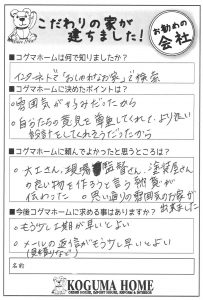 こだわりの家が
建ちました!
お勧めの
会社
■コグマホームは何で知りましたか?
インターネットで「おしゃれなお家」で検索
■コグマホームに決めたポイントは?
○雰囲気が好みだったから
○自分たちの意見を尊重してくれて、より良い
設計をしてくれそうだったから
■コグマホームに頼んでよかったと思うところは?
○大工さん、現場監督さん、塗装屋さん
の良い物を作ろうと言う熱意が
伝わった ○思い通りの雰囲気のお家が
出来ました
■今後コグマホームに求める事はありますか?
○もう少し工期が早いとよい
○メールの返信がもう少し早いとよい
(見積りなど)
名前
KOGUMA HOME